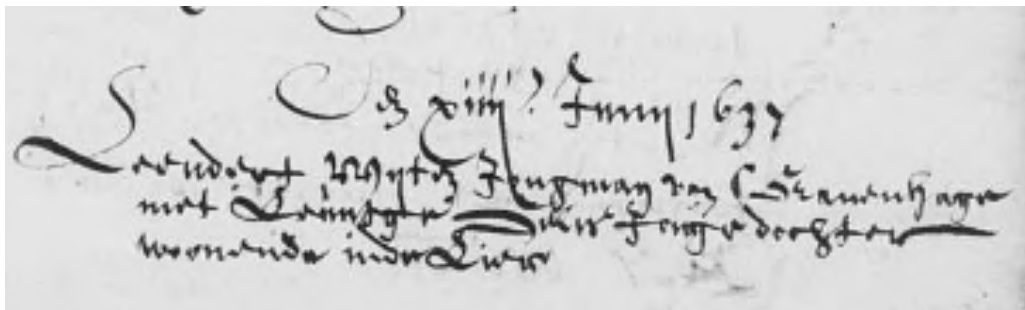 Den xiiij.e Junij 1637
Leendert Wijtz Jongman van SGravenhage
met Leuntge Jonge dochter
wonende inde Lier